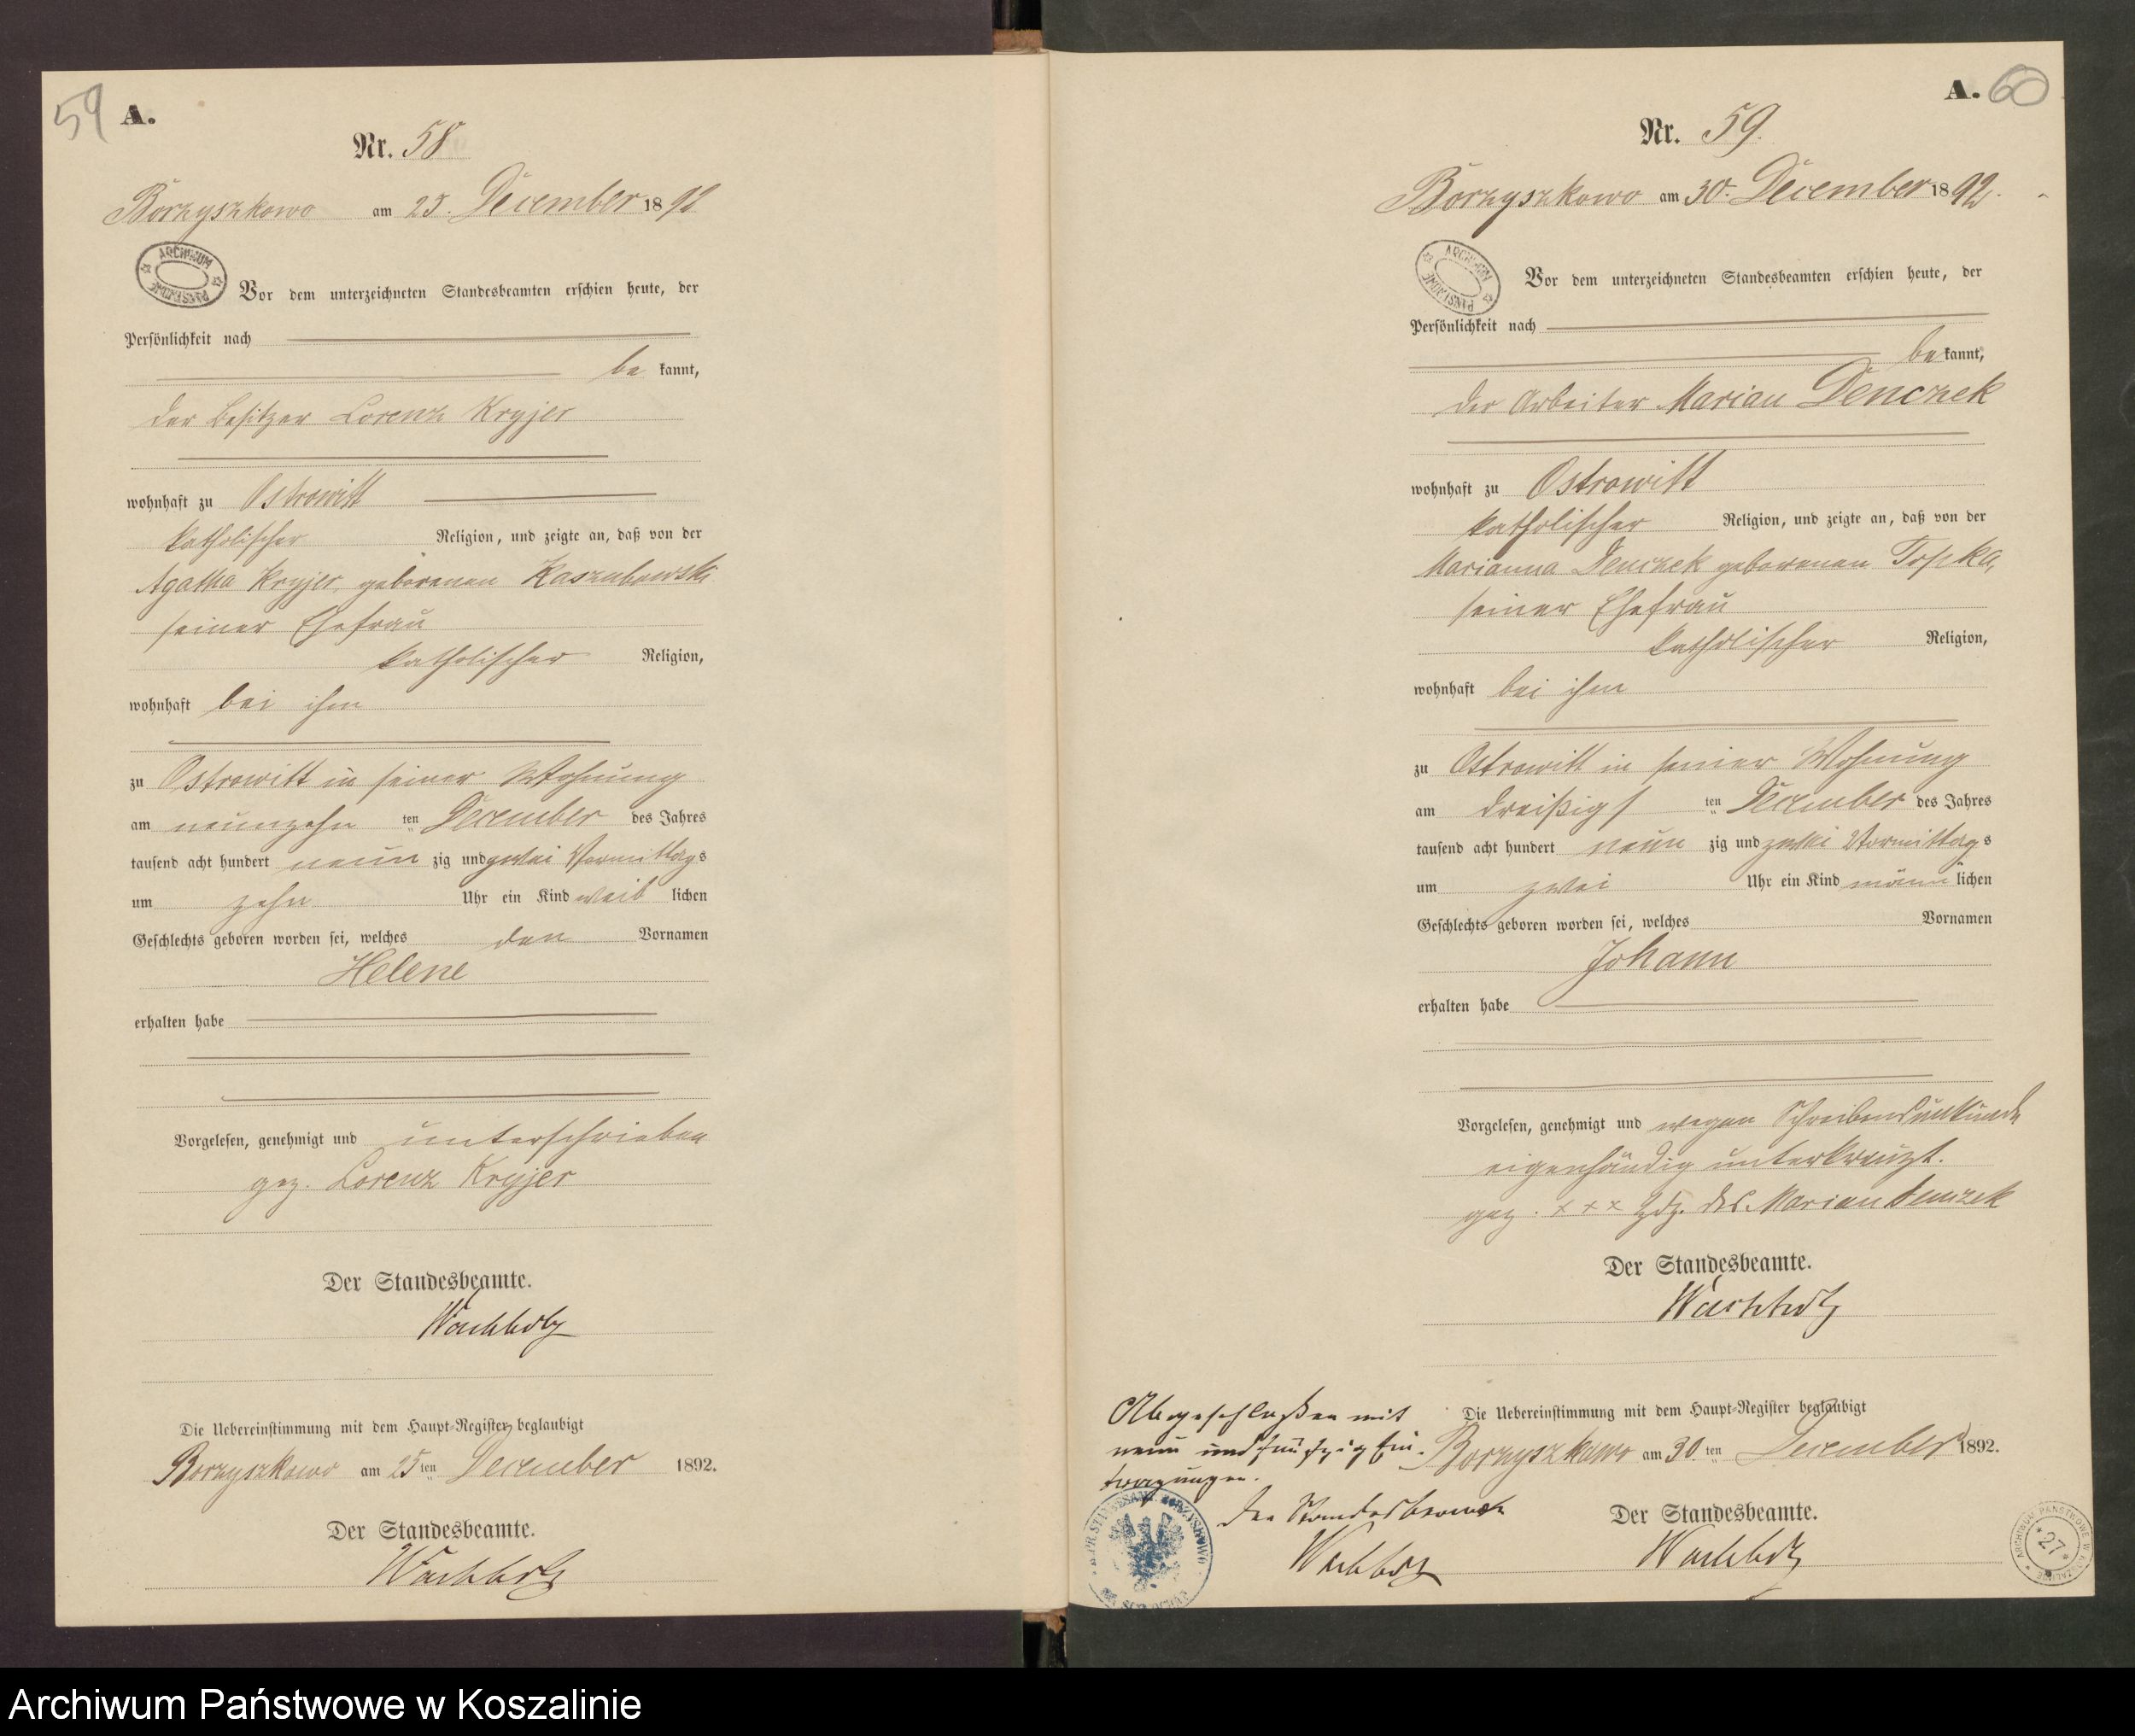 59
A.
Nr. 58
Borzyszkowo am 25. December 1892
ARCHIWUM PAŃSTWOWE
Vor dem unterzeichneten Standesbeamten erschien heute, der
Persönlichkeit nach
be kannt,
der Besitzer Lorenz Kryjer
wohnhaft zu Ostrowitt
katholischer Religion, und zeigte an, daß von der
Agatha Kryjer, geborenen Kaszubowski
seiner Ehefrau
katholischer Religion,
wohnhaft bei ihm
zu Ostrowitt in seiner Wohnung
am neunzehn ten December des Jahres
tausend acht hundert neun zig und zwei Vormittags
um zehn Uhr ein Kind weib lichen
Geschlechts geboren worden sei, welches den Vornamen
Helene
erhalten habe
Vorgelesen, genehmigt und unterschrieben
gez. Lorenz Kryjer
Der Standesbeamte.
Wachholz
Die Uebereinstimmung mit dem Haupt-Register beglaubigt
Borzyszkowo am 25 ten December 1892.
Der Standesbeamte.
Wachholz
A. 60
Nr. 59.
Borzyszkowo am 30. December 1892.
ARCHIWUM PAŃSTWOWE
Vor dem unterzeichneten Standesbeamten erschien heute, der
Persönlichkeit nach
be kannt,
der Arbeiter Marian Denczek
wohnhaft zu Ostrowitt
katholischer Religion, und zeigte an, daß von der
Marianna Denczek geborenen
seiner Ehefrau
katholischer Religion,
wohnhaft bei ihm
zu Ostrowitt in seiner Wohnung
am dreißigs ten December des Jahres
tausend acht hundert neun zig und zwei Vormittags
um zwei Uhr ein Kind männ lichen
Geschlechts geboren worden sei, welches Vornamen
Johann
erhalten habe
Vorgelesen, genehmigt und wegen Schreibensunkunde
eigenhändig unterkreuzt.
gez. x x x Hdz. des Marian Denczek
Der Standesbeamte.
Wachholz
Die Uebereinstimmung mit dem Haupt-Register beglaubigt
Borzyszkowo am 30. ten December 1892.
Der Standesbeamte.
Wachholz
Abgeschlossen mit
neun und fünfzig Ein-
tragungen.
Der Standesbeamte
Wachholz
ARCHIWUM PAŃSTWOWE W KOSZALINIE
* 27 *
Archiwum Państwowe w Koszalinie